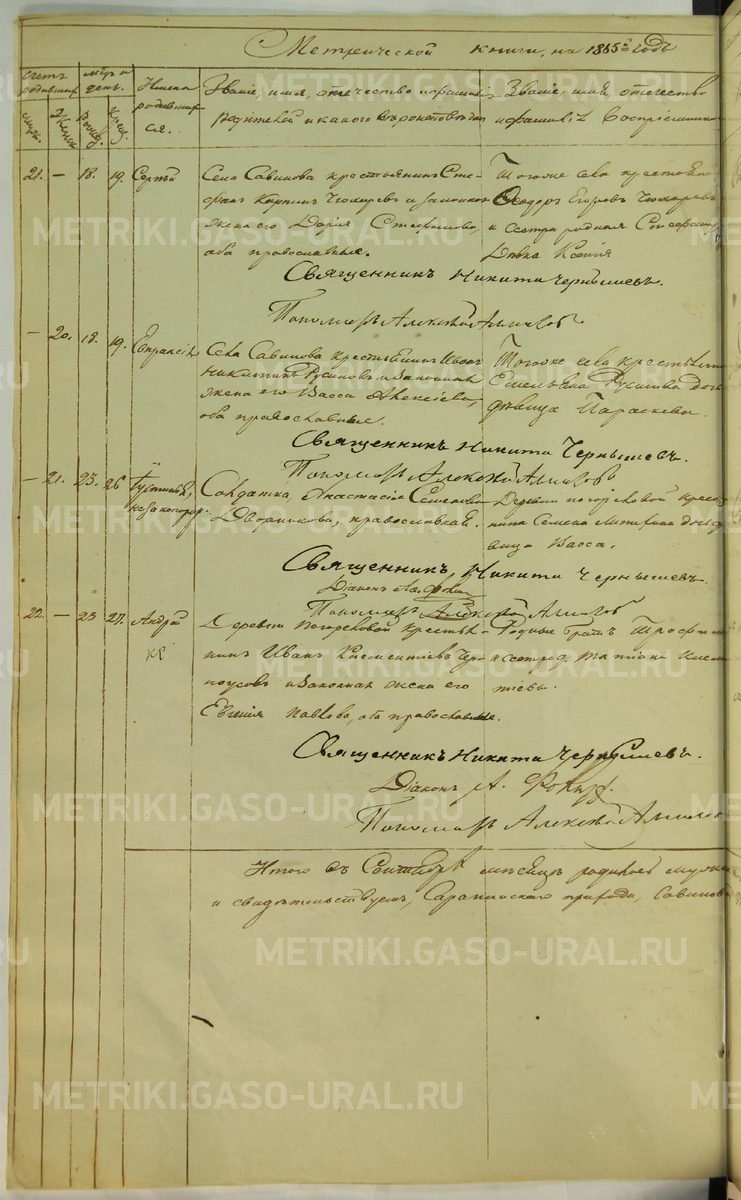 Метрической книги, на 1865й годъ
Счетъ родившихся
муж.
Женс.
мѣсяцъ и день.
Рожд.
Крещ.
Имена родившихся.
Званіе, имя, отечество и фамилія
родителей и какого вѣроисповѣданія
Званіе, имя отечество
и фамилія воспріемниковъ
21. — 18. 19. Сергѣй
Села Савинова крестьянинъ Сте-
фанъ Карпинъ Чюхаревъ и законная
жена его Дарія Стефанова,
оба православные.
Тогоже села крестьянинъ
Ѳеодоръ Егоровъ Чюхаревъ
и сестра родная Стефана
Дѣвка Ксенія
Священникъ Никита Чернышевъ.
Пономарь Алексѣй
— 20. 18. 19. Евпраксія
Села Савинова крестьянинъ Иванъ
Никитинъ Русиновъ и законная
жена его Васса Алексѣева,
оба православные.
Тогоже села крестьянина
Емельяна Русинова дочь
дѣвица Параскева.
Священникъ Никита Чернышевъ.
Пономарь Алексѣй
— 21. 23. 26
Солдатка, Анастасія Семенова
Дворникова, православная.
Деревни
Семена дочь дѣ-
вица Васса.
Священникъ, Никита Чернышевъ.
Діаконъ
Пономарь Алексѣй
22. — 25 27. Андрей
Деревни крестья-
нинъ Иванъ Климентіевъ Чер-
ноусовъ и законная жена его
Евгенія Павлова, оба православные.
Родный братъ Трофим
и сестра род. Татіана Клемен
тіевы.
Священникъ Никита Чернышевъ.
Діаконъ А.
Пономарь Алексѣй
Итого въ Сентябрѣ мѣсяцѣ родилось мужеска
и свидѣтельствуемъ, Сарапинскаго прихода, Савинов
METRIKI.GASO-URAL.RU